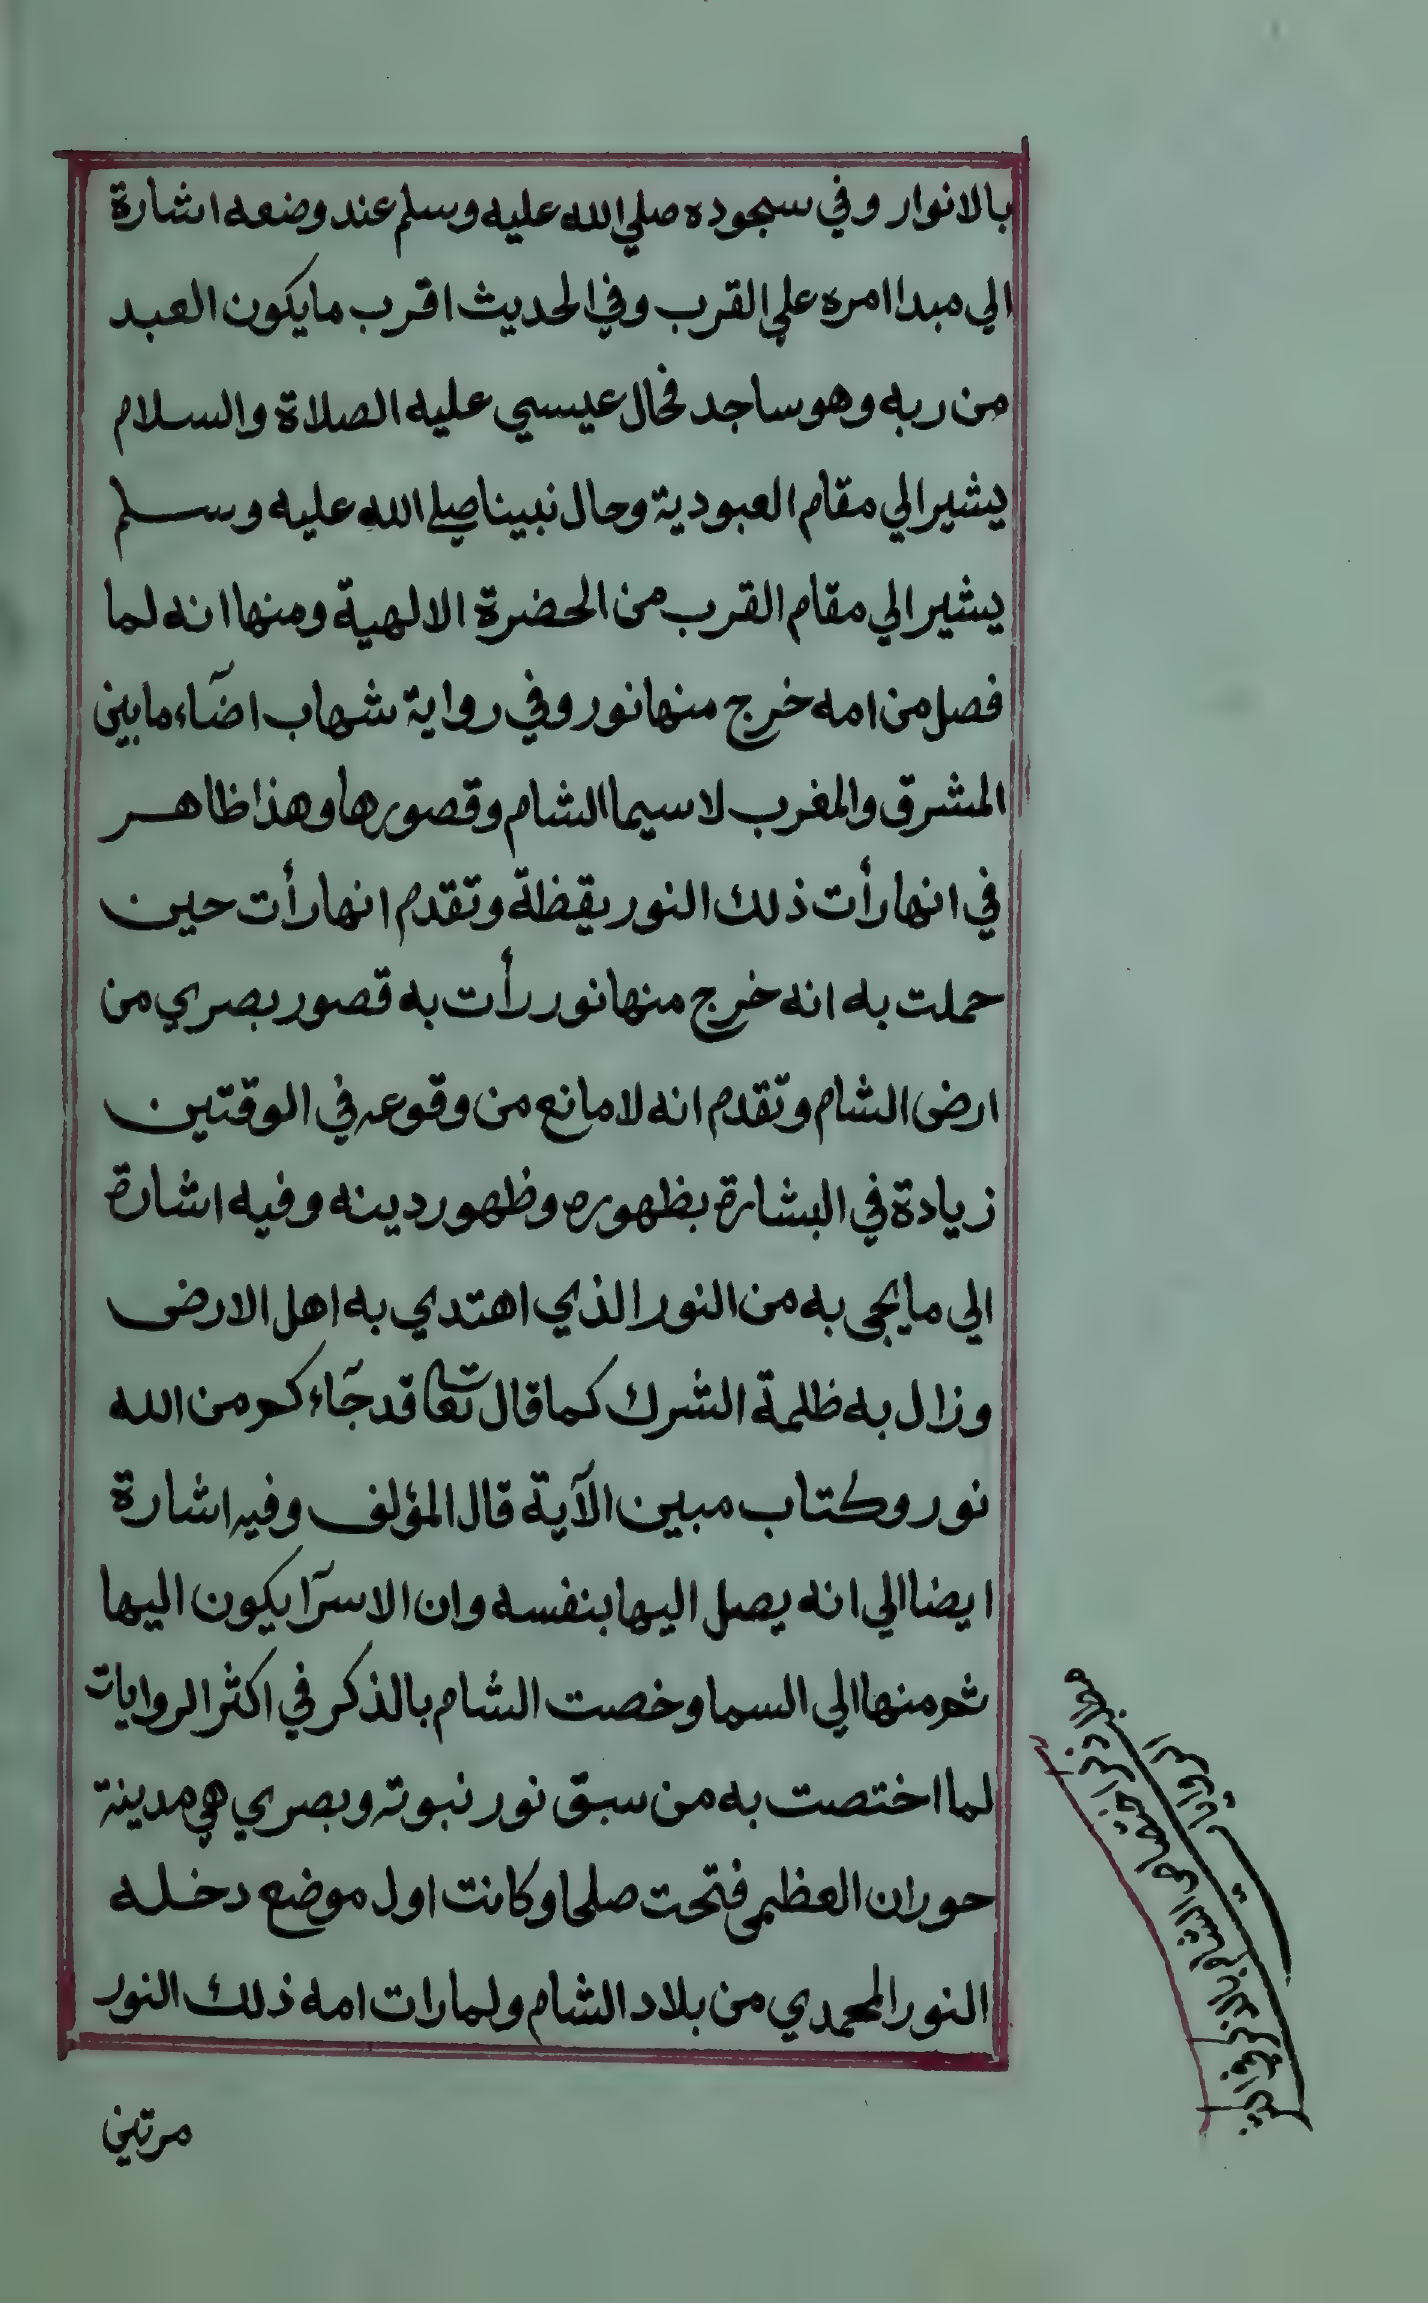 بالانوار وفي سجوده صلي الله عليه وسلم عند وضعه اشارة
الي مبدا امره علي القرب وفي الحديث اقرب ما يكون العبد
من ربه وهو ساجد فحال عيسي عليه الصلاة والسلام
يشير الي مقام العبودية وحال نبينا صلي الله عليه وسلم
يشير الي مقام القرب من الحضرة الالهية ومنها انه لما
فصل من امه خرج منها نور وفي رواية شهاب اضآء ما بين
المشرق والمغرب لاسيما الشام وقصورها وهذا ظاهر
في انها رأت ذلك النور يقظة وتقدم انها رأت حين
حملت به انه خرج منها نور رأت به قصور بصري من
ارض الشام وتقدم انه لا مانع من وقوعه في الوقتين
زيادة في البشارة بظهوره وظهور دينه وفيه اشارة
الي ما يجي به من النور الذي اهتدي به اهل الارض
وزال به ظلمة الشرك كما قال تعالى قد جآء كم من الله
نور وكتاب مبين الآية قال المؤلف وفيه اشارة
ايضا الي انه يصل اليها بنفسه وان الاسرآ يكون اليها
ثم منها الي السما وخصت الشام بالذكر في اكثر الروايات
لما اختصت به من سبق نور نبوته وبصري هي مدينة
حوران العظمي فتحت صلحا وكانت اول موضع دخله
النور المحمدي من بلاد الشام ولما رات امه ذلك النور
مرتين
ذكر اختصاص الشام بالذكر في اكثر
الروايات